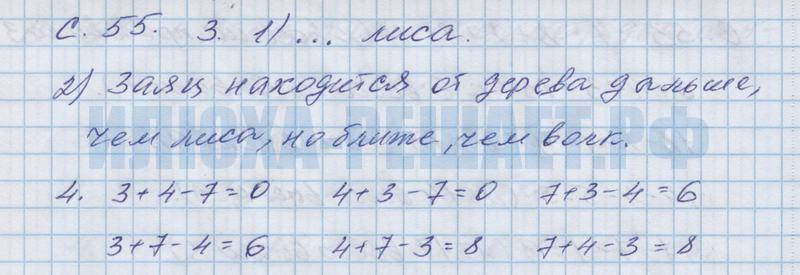 с. 55. 3. 1) ... лиса.
2) Заяц находится от дерева дальше,
чем лиса, но ближе, чем волк.
ИЛЮХА-РЕШАЕТ.РФ
4. 3+4-7=0 4+3-7=0 7+3-4=6
3+7-4=6 4+7-3=8 7+4-3=8